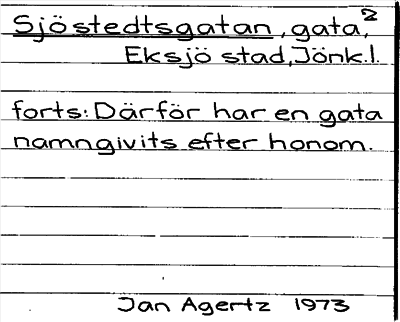 Sjöstedtsgatan, gata, 2
Eksjö stad, Jönk.l.
forts: Därför har en gata
namngivits efter honom.
Jan Agertz 1973